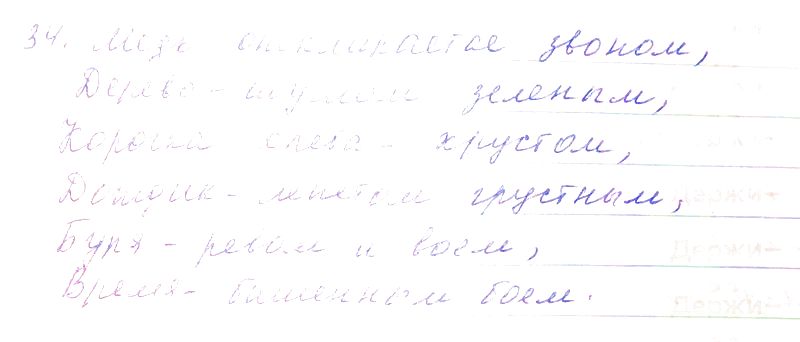 34. Медь откликается звоном,
Дерево - шумом зеленым,
Корочка снега - хрустом,
Дождик - шепотом грустным,
Буря - ревом и воем,
Время - башенным боем.